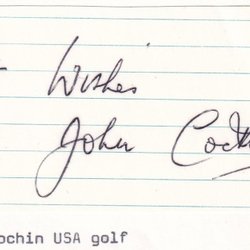 Wishes
John Cock
ochin USA golf